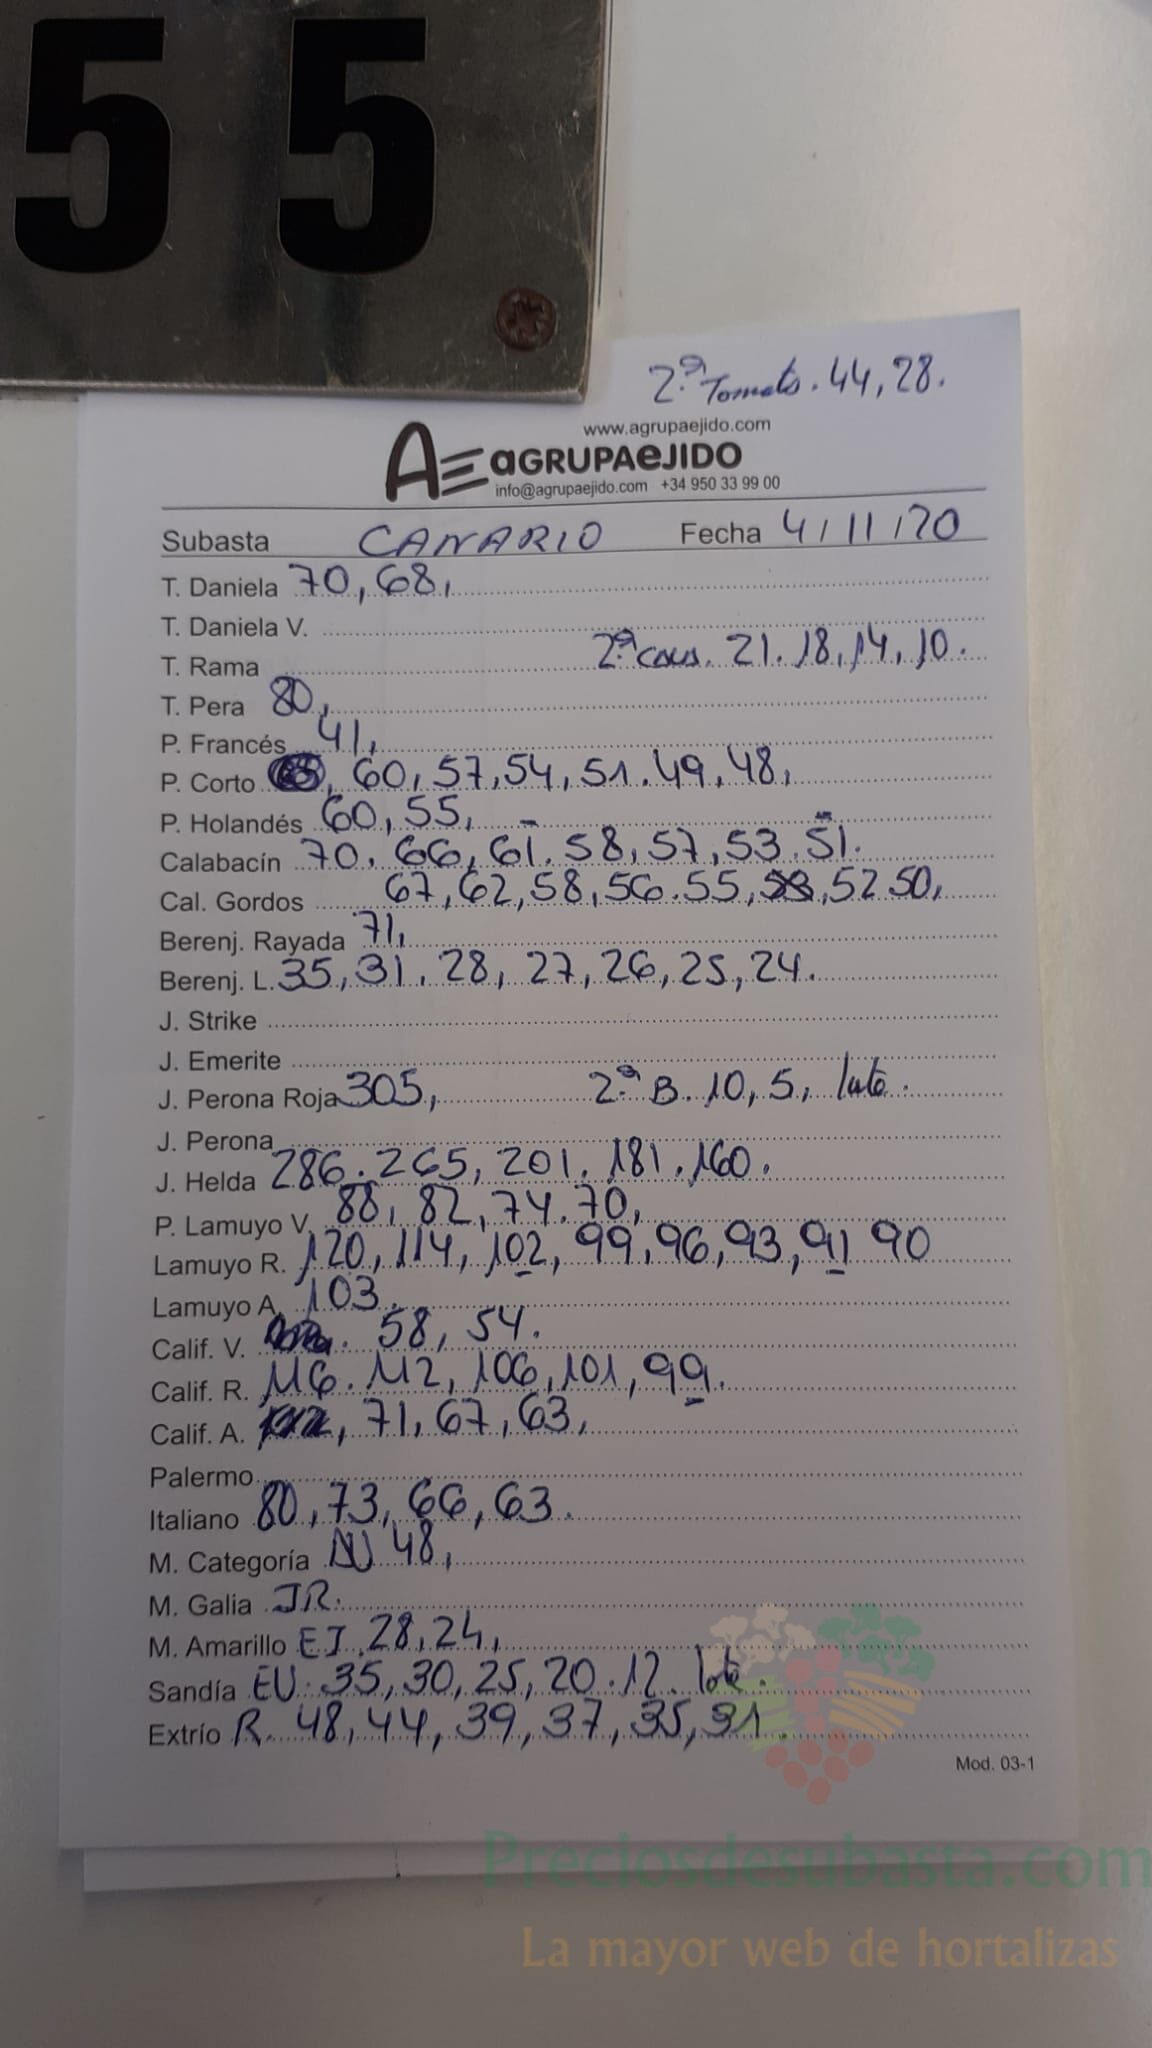 55
2ª Tomate. 44, 28.
www.agrupaejido.com
AE aGRUPAeJIDO
info@agrupaejido.com +34 950 33 99 00
Subasta CANARIO Fecha 4/11/20
T. Daniela 70, 68,
T. Daniela V.
T. Rama 2ª cous. 21. 18, 14, 10.
T. Pera 80,
P. Francés 41,
P. Corto , 60, 57, 54, 51. 49, 48,
P. Holandés 60, 55,
Calabacín 70. 66, 61. 58, 57, 53. 51.
Cal. Gordos 67, 62, 58, 56. 55, 53, 52. 50,
Berenj. Rayada 71,
Berenj. L. 35, 31. 28, 27, 26, 25, 24.
J. Strike
J. Emerite
J. Perona Roja 305, 2ª B. 10, 5, lote.
J. Perona
J. Helda 286. 265, 201. 181. 160.
P. Lamuyo V. 88, 82, 74. 70,
Lamuyo R. 120, 114, 102, 99, 96, 93, 91 90
Lamuyo A. 103.
Calif. V. . 58, 54.
Calif. R. 116. 112, 106, 101, 99.
Calif. A. , 71, 67, 63,
Palermo
Italiano 80, 73, 66, 63.
M. Categoría N 48,
M. Galia JR.
M. Amarillo EJ 28, 24,
Sandía EU. 35, 30, 25, 20. 12. lote.
Extrío R. 48, 44, 39, 37, 35, 31.
Mod. 03-1
Preciosdesubasta.com
La mayor web de hortalizas